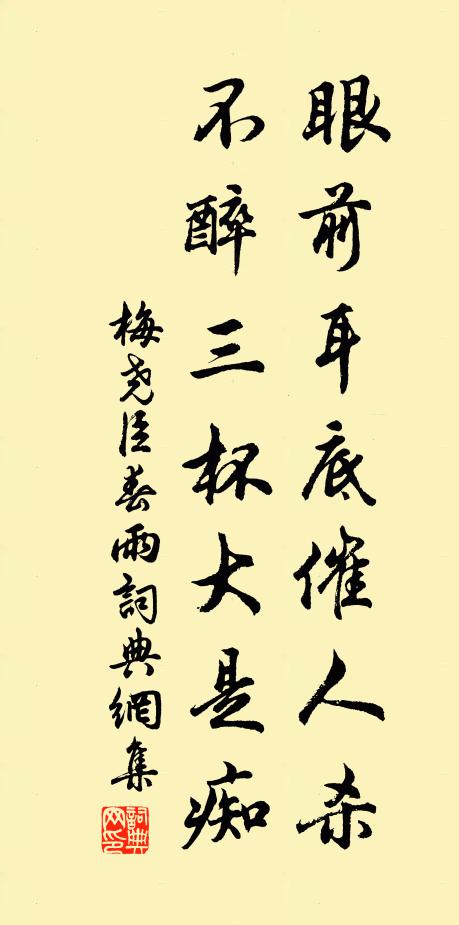 眼前耳底催人杀
不醉三杯大是痴
梅尧臣春雨詞典網集
詞典
网印